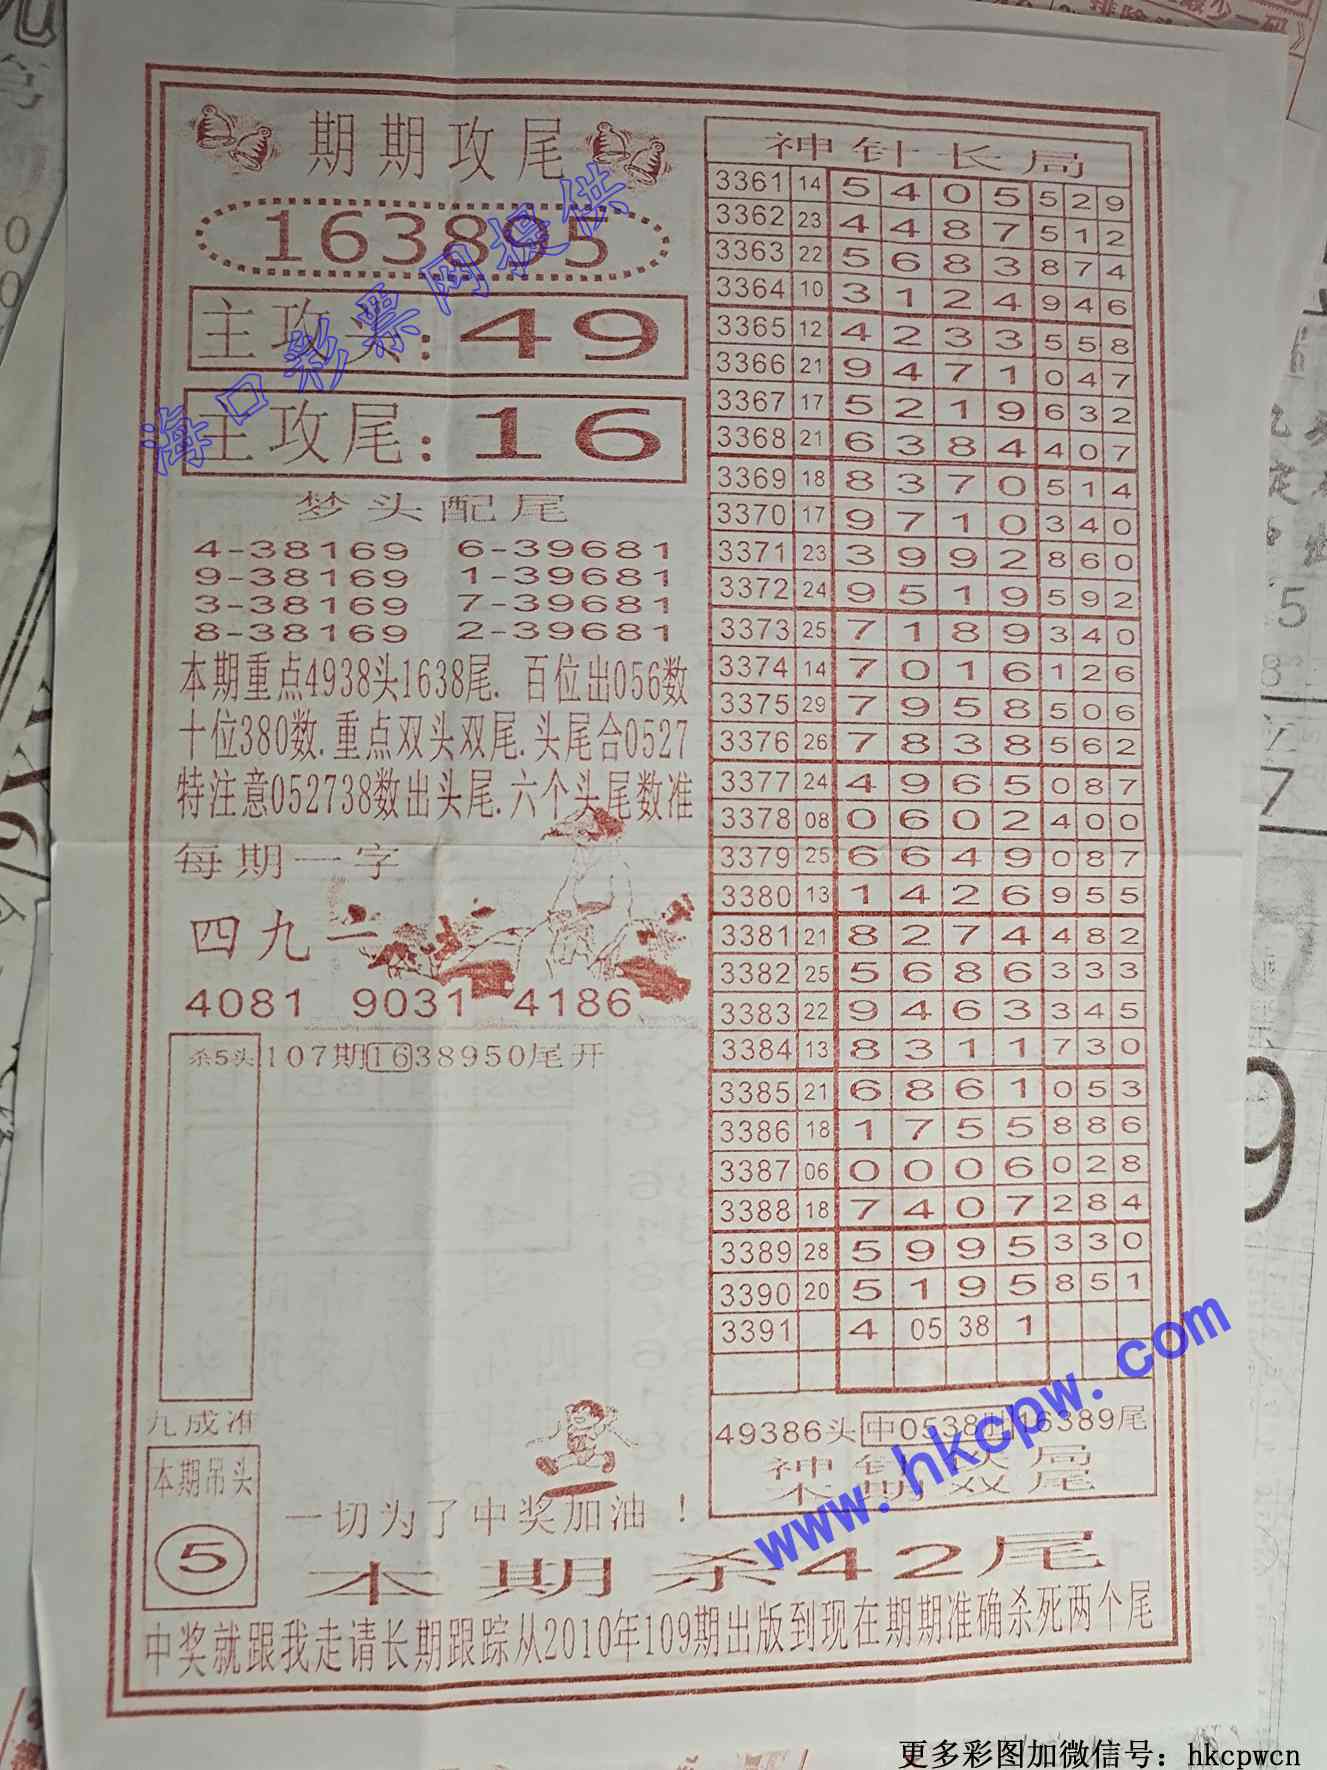 期期攻尾
163895
主攻头:49
主攻尾:16
梦头配尾
4-38169 6-39681
9-38169 1-39681
3-38169 7-39681
8-38169 2-39681
本期重点4938头1638尾.百位出056数
十位380数.重点双头双尾.头尾合0527
特注意052738数出头尾.六个头尾数准
每期一字
四九一
4081 9031 4186
杀5头 107期1638950尾开
九成准
本期吊头
5
一切为了中奖加油！
神针长局
3361 14 5 4 0 5 5 2 9
3362 23 4 4 8 7 5 1 2
3363 22 5 6 8 3 8 7 4
3364 10 3 1 2 4 9 4 6
3365 12 4 2 3 3 5 5 8
3366 21 9 4 7 1 0 4 7
3367 17 5 2 1 9 6 3 2
3368 21 6 3 8 4 4 0 7
3369 18 8 3 7 0 5 1 4
3370 17 9 7 1 0 3 4 0
3371 23 3 9 9 2 8 6 0
3372 24 9 5 1 9 5 9 2
3373 25 7 1 8 9 3 4 0
3374 14 7 0 1 6 1 2 6
3375 29 7 9 5 8 5 0 6
3376 26 7 8 3 8 5 6 2
3377 24 4 9 6 5 0 8 7
3378 08 0 6 0 2 4 0 0
3379 25 6 6 4 9 0 8 7
3380 13 1 4 2 6 9 5 5
3381 21 8 2 7 4 4 8 2
3382 25 5 6 8 6 3 3 3
3383 22 9 4 6 3 3 4 5
3384 13 8 3 1 1 7 3 0
3385 21 6 8 6 1 0 5 3
3386 18 1 7 5 5 8 8 6
3387 06 0 0 0 6 0 2 8
3388 18 7 4 0 7 2 8 4
3389 28 5 9 9 5 3 3 0
3390 20 5 1 9 5 8 5 1
3391 4 05 38 1
49386头 中0538肚 16389尾
神针 局
本期双尾
本期杀42尾
中奖就跟我走请长期跟踪从2010年109期出版到现在期期准确杀死两个尾
海口彩票网提供
www.hkcpw.com
更多彩图加微信号：hkcpwcn